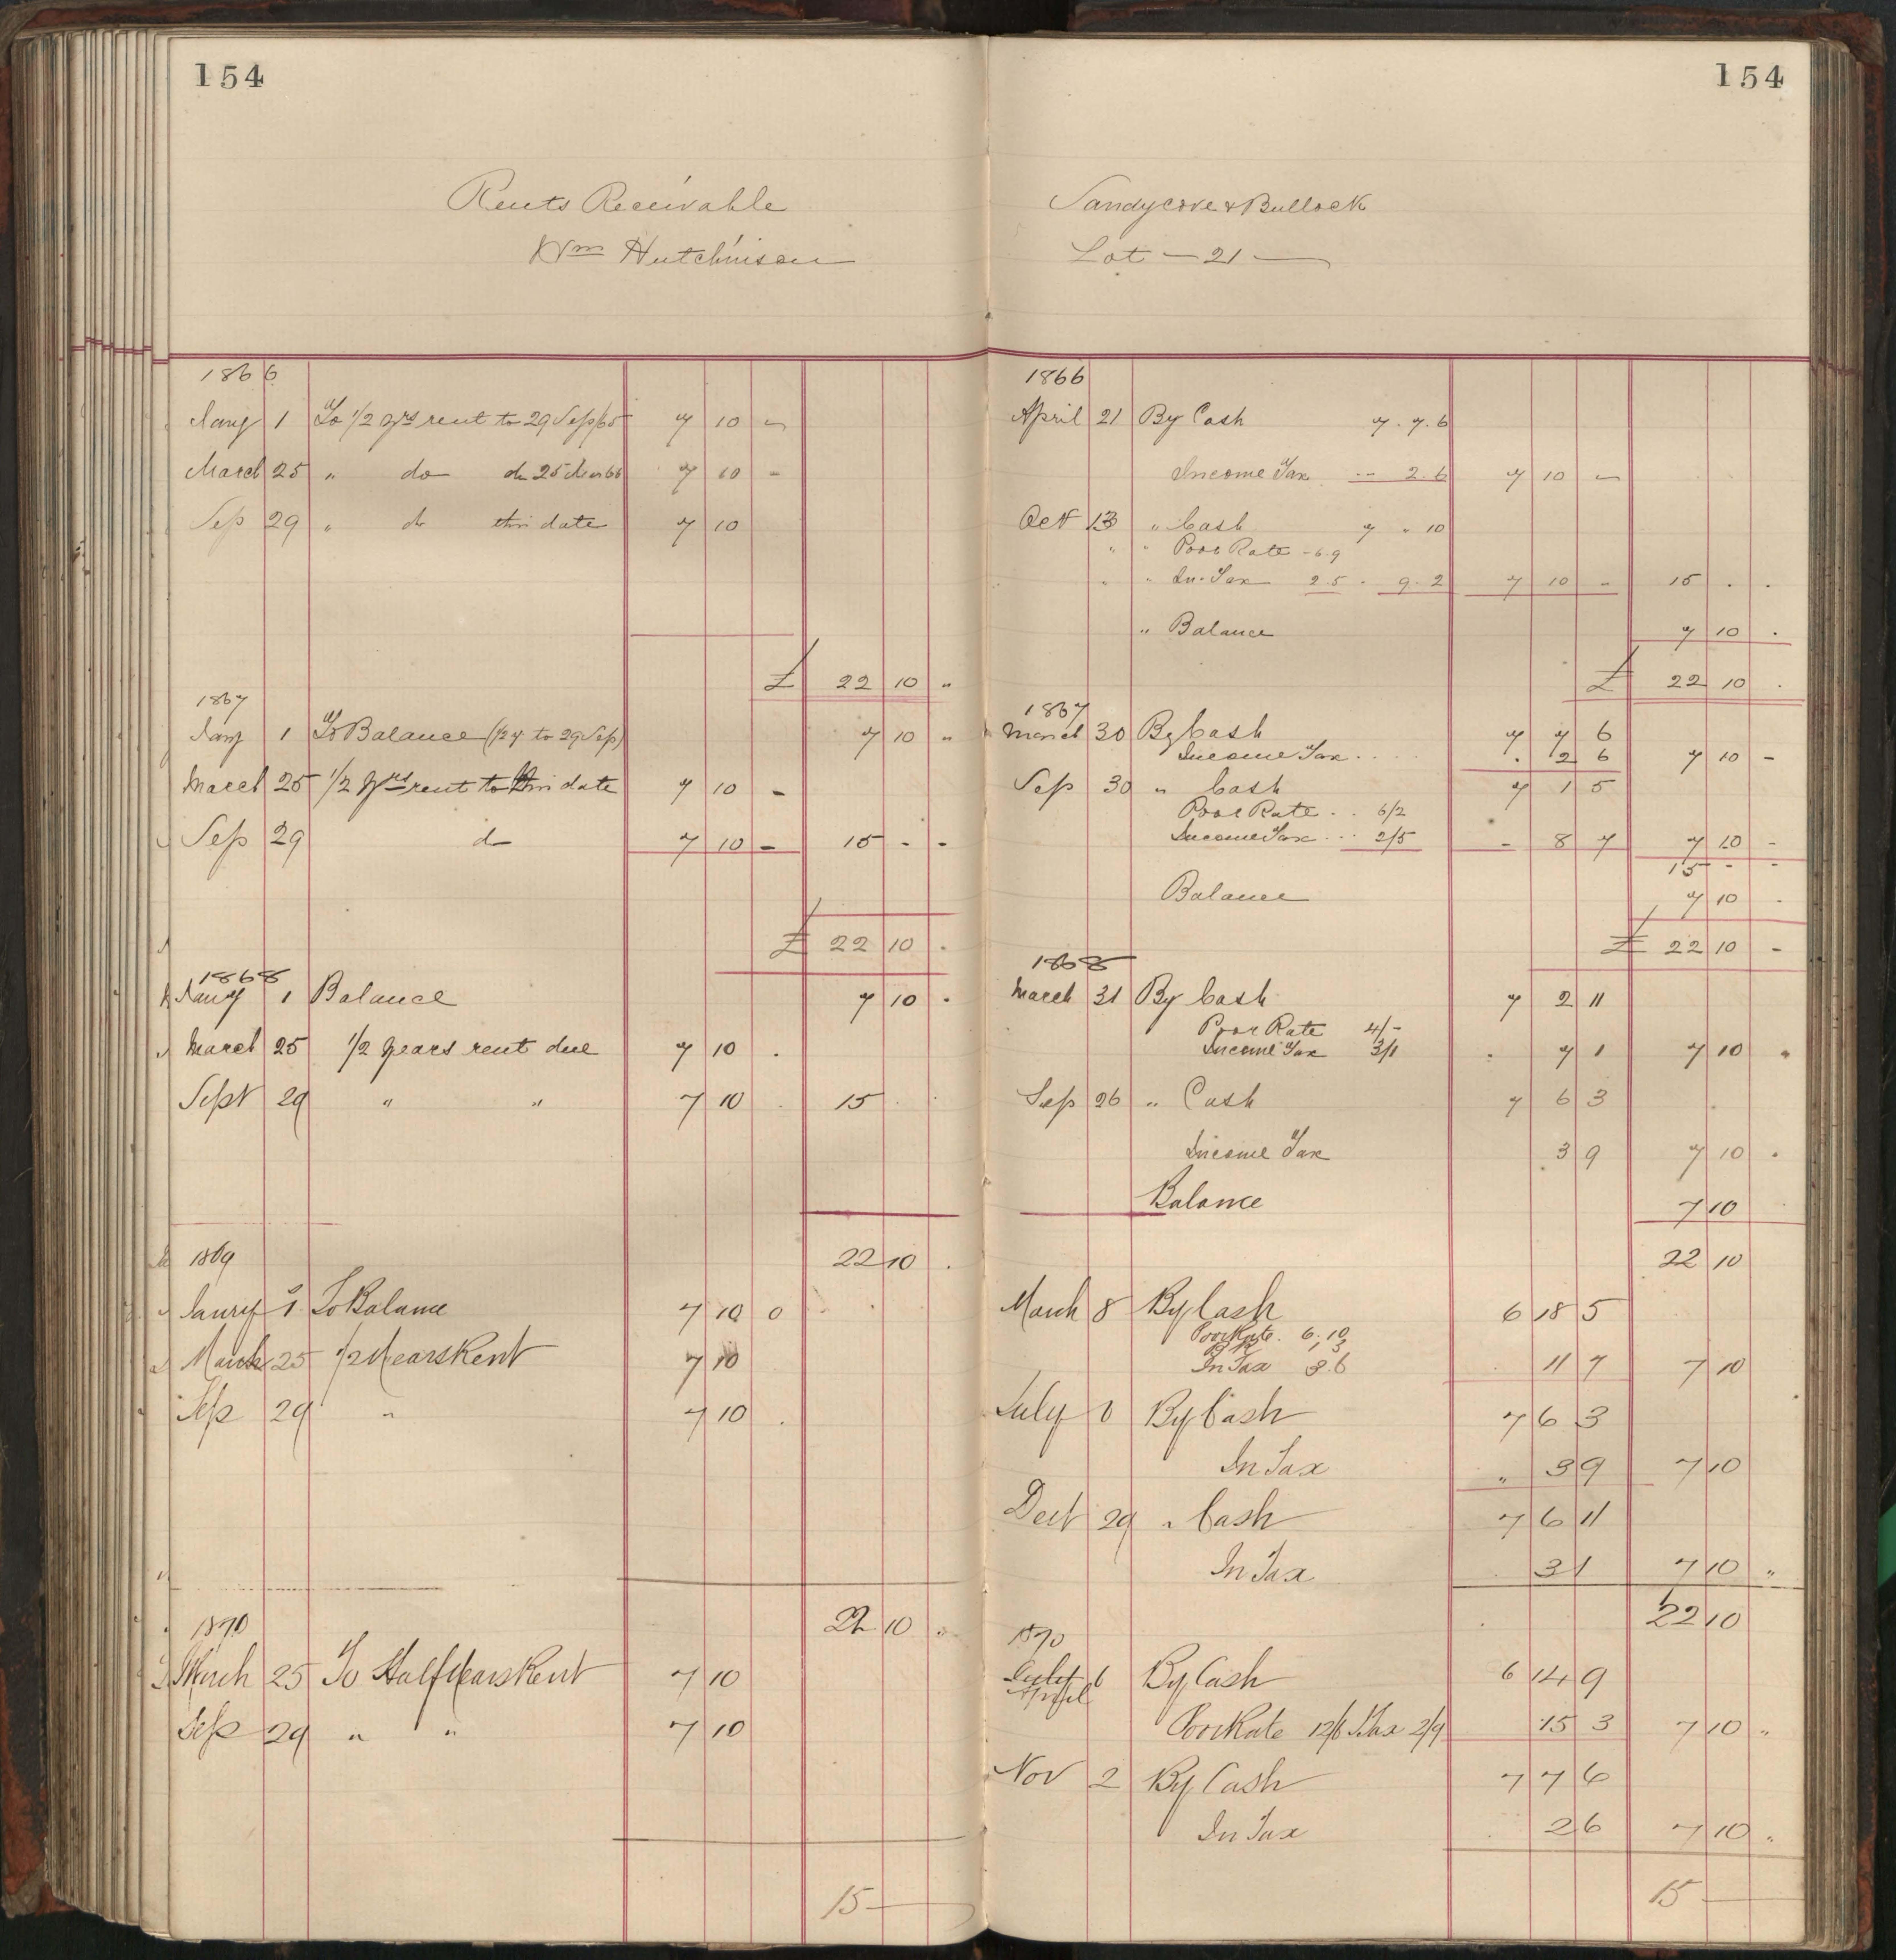 154
Rents Receivable
Wm Hutchinson
1866
Jany 1 To 1/2 yrs rent to 29 Sep/65 7 10 -
March 25 " do do 25 Mar 66 7 10 -
Sep 29 " do this date 7 10
£ 22 10 "
1867
Jany 1 To Balance (1/2 y to 29 Sep) 7 10 "
March 25 1/2 yrs rent to this date 7 10 -
Sep 29 do 7 10 - 15 - -
£ 22 10 .
1868
Jany 1 Balance 7 10 .
March 25 1/2 years rent due 7 10 .
Sept 29 " " 7 10 . 15 . .
22 10 .
1869
Jany 1 To Balance 7 10 0
March 25 1/2 Years Rent 7 10
Sep 29 " 7 10 .
22 10 "
1870
March 25 To Half Years Rent 7 10
Sep 29 " " 7 10
15 —
154
Sandycove & Bullock
Lot - 21 -
1866
April 21 By Cash 7 . 7 . 6
Income Tax -- 2.6 7 10 -
Oct 13 " Cash 7 " 10
" " Poor Rate - 6.9
" " In. Tax 2.5 . 9.2 7 10 " 15 . .
" Balance 7 10 .
£ 22 10 .
1867
March 30 By Cash 7 7 6
Income Tax . . . . . 2 6 7 10 -
Sep 30 " Cash 7 1 5
Poor Rate . . 6/2
Income Tax . . . 2/5 - 8 7 7 10 -
15 - -
Balance 7 10 .
£ 22 10 -
1868
March 31 By Cash 7 2 11
Poor Rate 4/-
Income Tax 3/1 . 7 1 7 10 .
Sep 26 " Cash 7 6 3
Income Tax . 3 9 7 10 .
Balance 7 10
22 10
March 8 By Cash 6 18 5
Poor Rate . 6.10
1/3
In Tax 3.6 . 11 7 7 10
July By Cash 7 6 3
In Tax " 3 9 7 10
Dect 29 " Cash 7 6 11
In Tax . 3 1 7 10 "
22 10
1870
July 6 By Cash 6 14 9
April
Poor Rate 12/6 I Tax 2/9 15 3 7 10 "
Nov 2 By Cash 7 7 6
In Tax . 2 6 7 10 "
15 —